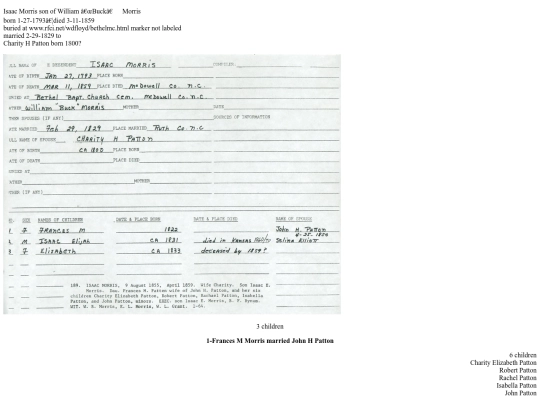 Isaac Morris son of William â€œBuckâ€ Morris
born 1-27-1793â€|died 3-11-1859
buried at www.rfci.net/wdfloyd/bethelmc.html marker not labeled
married 2-29-1829 to
Charity H Patton born 1800?
ULL NAME OF S DEPENDENT ISAAC MORRIS COMPILED
ATE OF BIRTH Jan 27, 1793 PLACE BORN
ATE OF DEATH MAR 11, 1859 PLACE DIED McDowell Co. N.C.
URIED AT Bethel Bapt. Church Cem. McDowell Co. N.C.
ATHER William "Buck" MORRIS MOTHER DATE
THER SPOUSES (IF ANY) SOURCES OF INFORMATION
ATE MARRIED Feb 29, 1829 PLACE MARRIED Ruth Co N.C
ULL NAME OF SPOUSE CHARITY H PATTON
ATE OF BIRTH CA 1800 PLACE BORN
ATE OF DEATH PLACE DIED
URIED AT
ATHER MOTHER
THER (IF ANY)
SEX NAMES OF CHILDREN DATE & PLACE BORN DATE & PLACE DIED NAME OF SPOUSE
1 F FRANCES M 1822 John H. Patton
2 M ISAAC Elijah CA 1831 died in Kansas Selina Elliott
3 F Elizabeth CA 1833 deceased by 1859?
189. ISAAC MORRIS, 9 August 1855, April 1859. Wife Charity. Son Isaac E.
Morris. Dau. Frances M. Patton wife of John H. Patton, and her six
children Charity Elizabeth Patton, Robert Patton, Rachael Patton, Isabella
Patton, and John Patton, minors. EXEC. son Isaac E. Morris, S. F. Bynum.
WIT. W. B. Morris, D. L. Morris, W. L. Grant.
3 children
1-Frances M Morris married John H Patton
6 children
Charity Elizabeth Patton
Robert Patton
Rachel Patton
Isabella Patton
John Patton